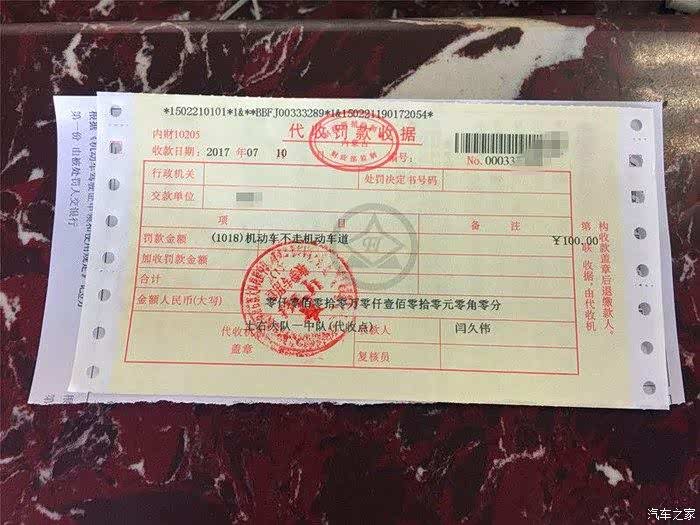 *1502210101*1&**BBFJ00333289*1&150221190172054*
内财10205
代收罚款收据
收款日期: 2017 年07 10
No.00033
行政机关
处罚决定书号码
交款单位
项 目
备 注
罚款金额 (1018)机动车不走机动车道 ¥100.00
加收罚款金额
合计
金额人民币(大写) 零仟零佰零拾零万零仟壹佰零拾零元零角零分
代收机
盖章
土右大队一中队(代收点)
款人 闫久伟
复核员
第一
款收据,由代收机
构收款盖章后退缴款人。
第一份 由被处罚人交银行
汽车之家